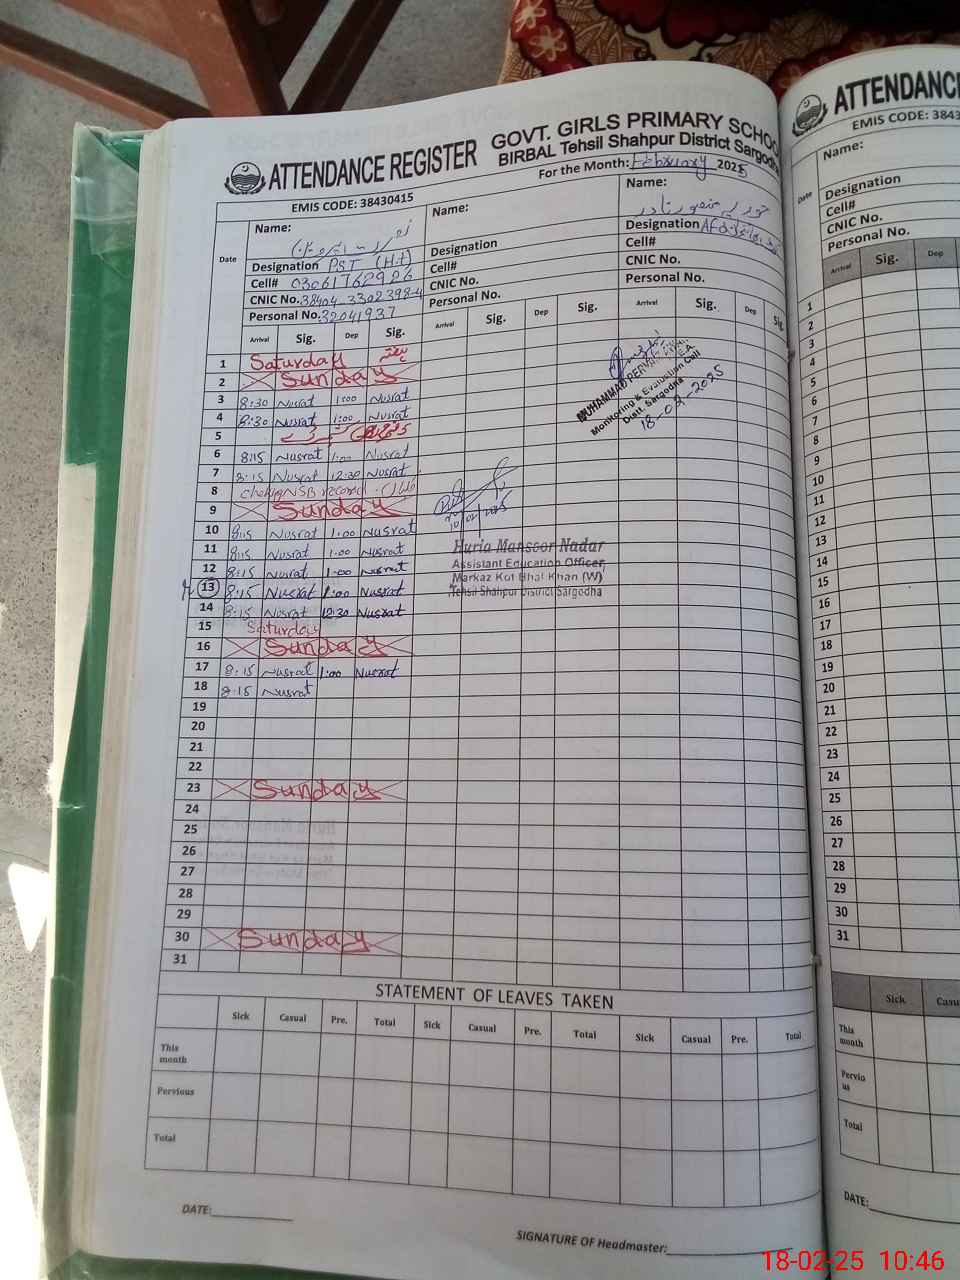 ATTENDANCE REGISTER
GOVT. GIRLS PRIMARY SCHOO
BIRBAL Tehsil Shahpur District Sargodha
EMIS CODE: 38430415
For the Month: February 2025
Date
Name:
Designation PST (H.t)
Cell# 03061762926
CNIC No. 38404-3302398-4
Personal No. 32041937
Name:
Designation
Cell#
CNIC No.
Personal No.
Name: حوریہ منصور نادر
Designation
Cell#
CNIC No.
Personal No.
Arrival Sig. Dep Sig. Arrival Sig. Dep Sig. Arrival Sig. Dep Sig.
1 Saturday ہفتہ
2 Sunday
3 8:30 Nusrat 1:00 Nusrat
4 8:30 Nusrat 1:00 Nusrat
5
6 8:15 Nusrat 1:00 Nusrat
7 8:15 Nusrat 12:30 Nusrat
8 NSB record
9 Sunday
10 8:15 Nusrat 1:00 Nusrat
11 8:15 Nusrat 1:00 Nusrat
12 8:15 Nusrat 1:00 Nusrat
13 8:15 Nusrat 1:00 Nusrat
14 8:15 Nusrat 12:30 Nusrat
15 Saturday
16 Sunday
17 8:15 Nusrat 1:00 Nusrat
18 8:15 Nusrat
19
20
21
22
23 Sunday
24
25
26
27
28
29
30 Sunday
31
MUHAMMAD PERVAIZ
Monitoring & Evaluation Cell
Distt. Sargodha
18-02-2025
Huria Mansoor Nadar
Assistant Education Officer,
Markaz Kot Bhai Khan (W)
Tehsil Shahpur District Sargodha
STATEMENT OF LEAVES TAKEN
Sick Casual Pre. Total Sick Casual Pre. Total Sick Casual Pre. Total
This month
Pervious
Total
DATE:
SIGNATURE OF Headmaster:
ATTENDANCE
EMIS CODE: 3843
Date
Name:
Designation
Cell#
CNIC No.
Personal No.
Arrival Sig. Dep
1
2
3
4
5
6
7
8
9
10
11
12
13
14
15
16
17
18
19
20
21
22
23
24
25
26
27
28
29
30
31
Sick Casu
This month
Pervio us
Total
DATE:
18-02-25 10:46